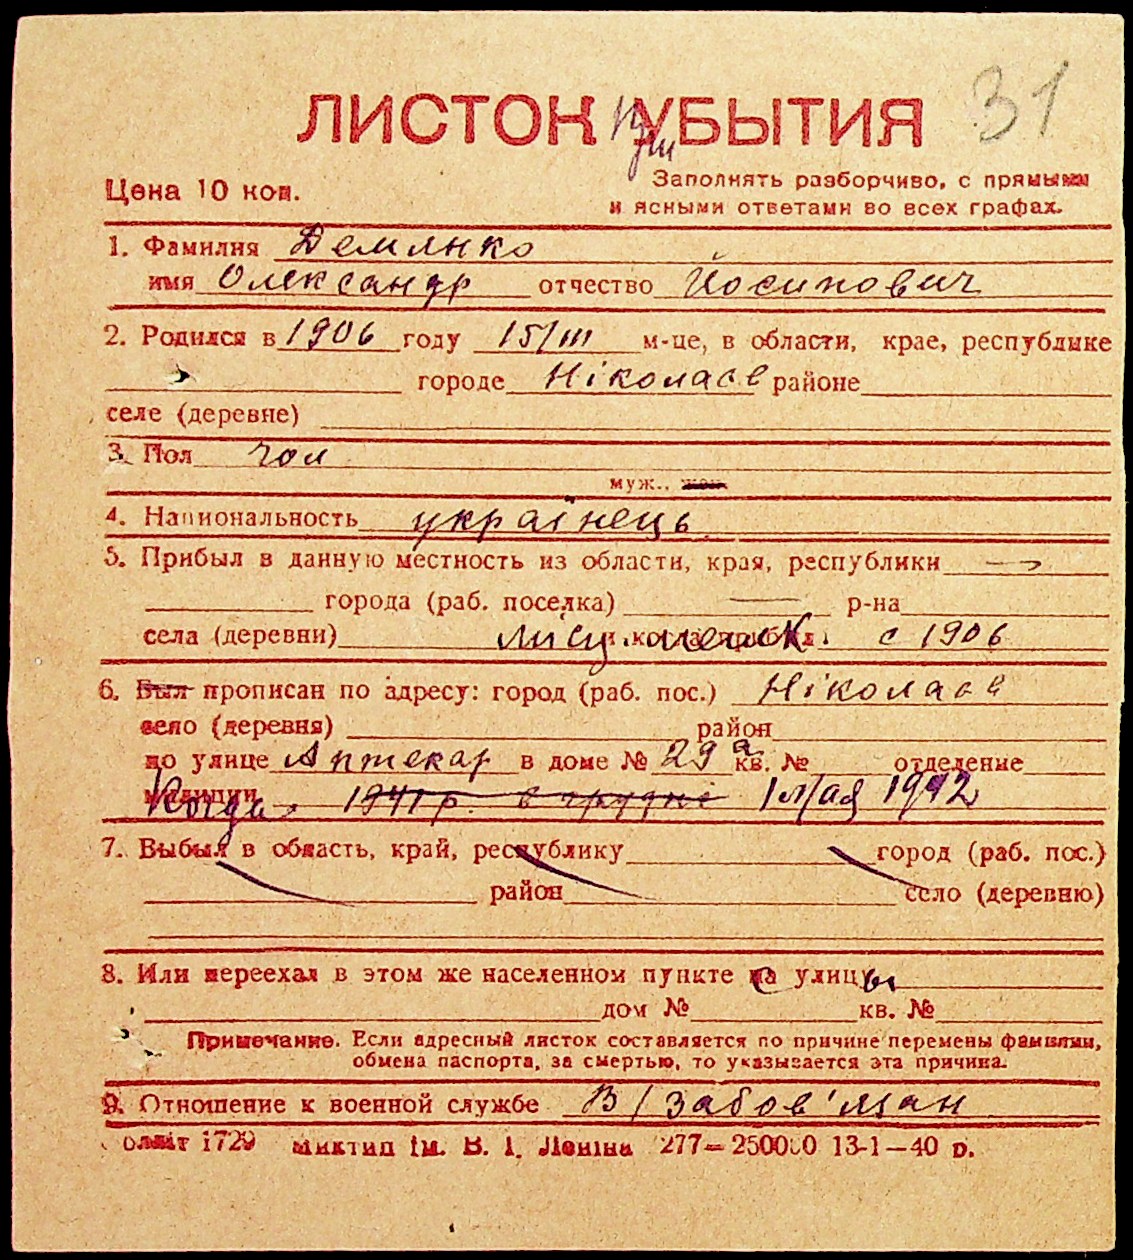 31
ЛИСТОК УБЫТИЯ
Цена 10 коп.
Заполнять разборчиво, с прямыми
и ясными ответами во всех графах.
1. Фамилия Демянко
имя Олександр отчество Йосипович
2. Родился в 1906 году 15/III м-це, в области, крае, республике
городе Ніколаєв районе
селе (деревне)
3. Пол чол
муж., жен
4. Национальность українець
5. Прибыл в данную местность из области, края, республики —
города (раб. поселка) — р-на
села (деревни) місц. мешк. с 1906
6. Был прописан по адресу: город (раб. пос.) Ніколаєв
село (деревня) район
по улице Аптекар в доме № 29а кв. № отделение
милиции Когда 1941 р. в грудне 1 мая 1942
7. Выбыл в область, край, республику город (раб. пос.)
район село (деревню)
8. Или переехал в этом же населенном пункте с улицы
дом № кв. №
Примечание. Если адресный листок составляется по причине перемены фамилии,
обмена паспорта, за смертью, то указывается эта причина.
9. Отношение к военной службе В/Забов'язан
1729 Миктип ім. В. І. Леніна 277—250000 13-1—40 р.